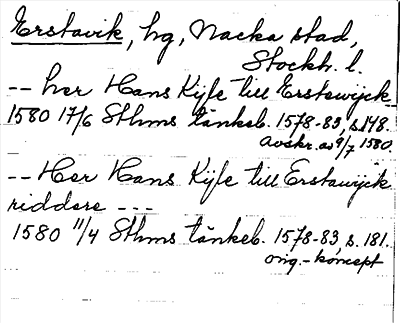 Erstavik, hg, Nacka stad,
Stockh. l.
-- her Hans Kijle till Erstewijck
1580 17/6 Sthms tänkeb. 1578-83, s. 148.
avskr. av 9/7 1580.
-- Her Hans Kijle till Erstawijck
riddere ---
1580 11/4 Sthms tänkeb. 1578-83, s. 181.
orig.-koncept